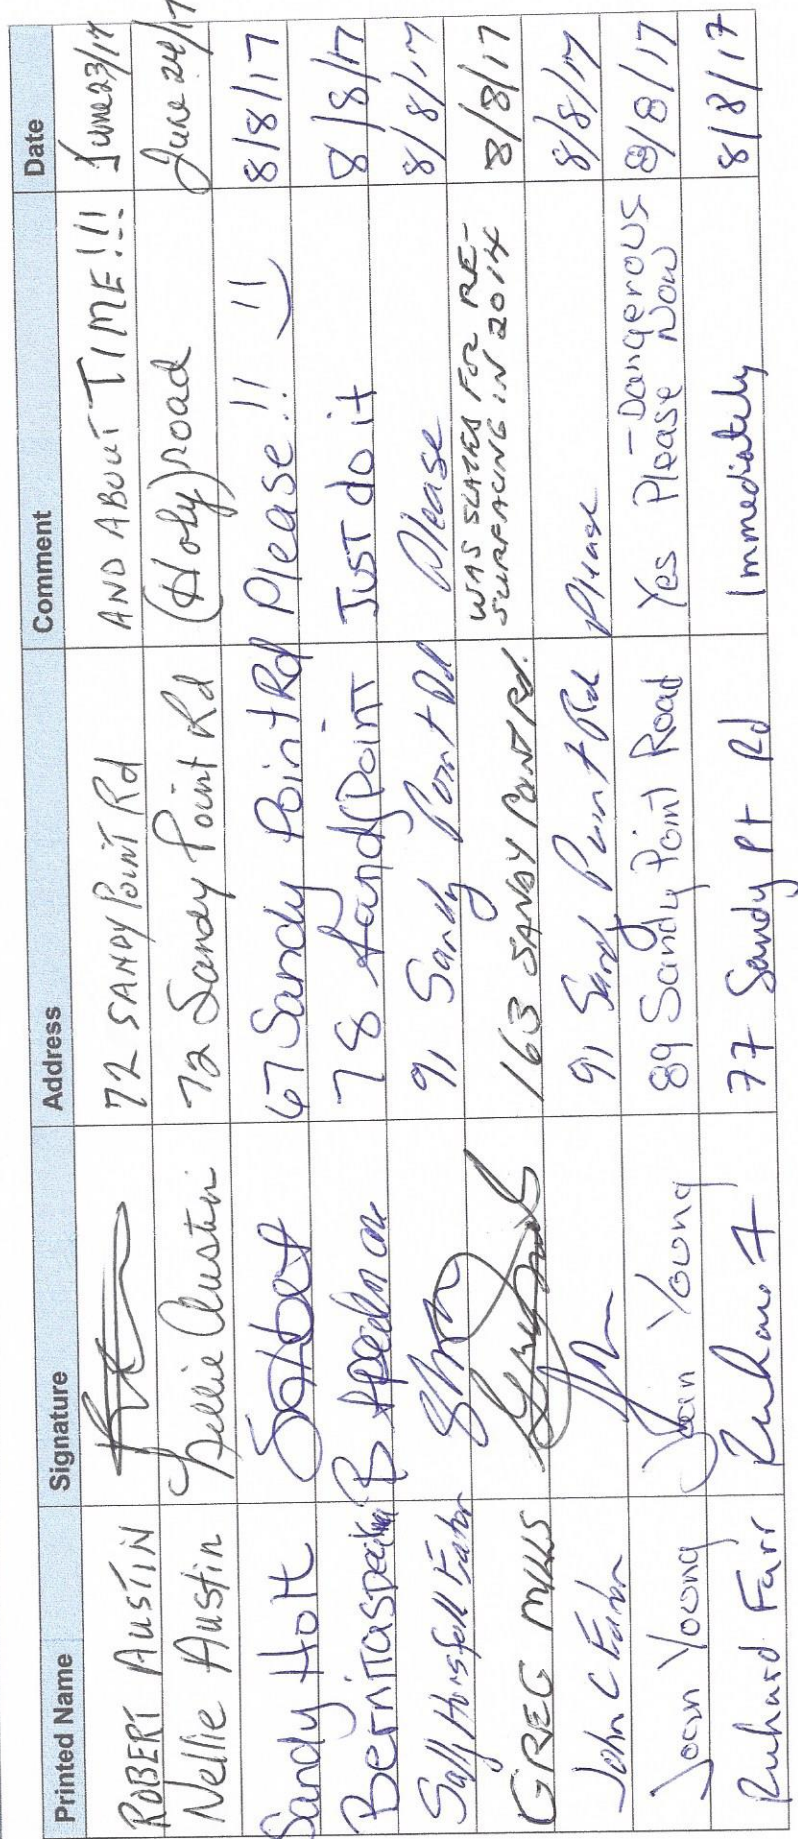 Printed Name Signature Address Comment Date
ROBERT AUSTIN 72 SANDY POINT Rd AND ABOUT TIME!!! June 23/17
Nellie Austin Nellie Austin 72 Sandy Point Rd (Holy) road June 24/17
Sandy Holt 67 Sandy Point Rd Please!! 8/8/17
78 Sandy Point JUST do it 8/8/17
Sally Horsfall Eaton 91 Sandy Point Rd Please 8/8/17
GREG MILLS 163 SANDY POINT Rd. WAS SLATED FOR RE-
SURFACING IN 2014 8/8/17
John C Eaton 91 Sandy Point Rd Please 8/8/17
Joan Young Joan Young 89 Sandy Point Road Yes Please - Dangerous
Now 8/8/17
Richard Farr Richard F 77 Sandy Pt Rd Immediately 8/8/17